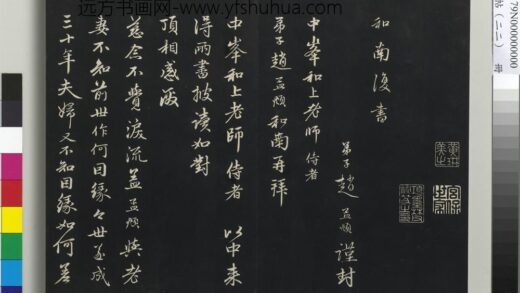 远方书画网-www.yfshuhua.com
79N00000000000
帖(二二)
和南復書
弟子趙孟頫謹封
中峯和上老師 侍者
弟子趙孟頫和南再拜
中峯和上老師 侍者 以中来
得兩書披讀如對
頂相感激
慈念不覺淚流盖孟頫與老
妻不知前世作何因緣今世遂成
三十年夫婦又不知因緣如何差